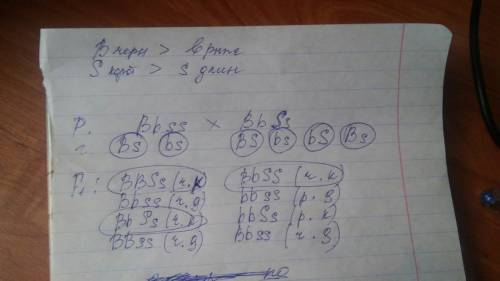 B черн > b рыж
S кор > s длин
P. Bbss × BbSs
г. Bs bs BS bs bS Bs
F1: BBSs (ч.к) BbSs (ч.к)
Bbss (ч.д) bbss (р.д)
BbSs (ч.к) bbSs (р.к)
BBss (ч.д) Bbss (ч.д)